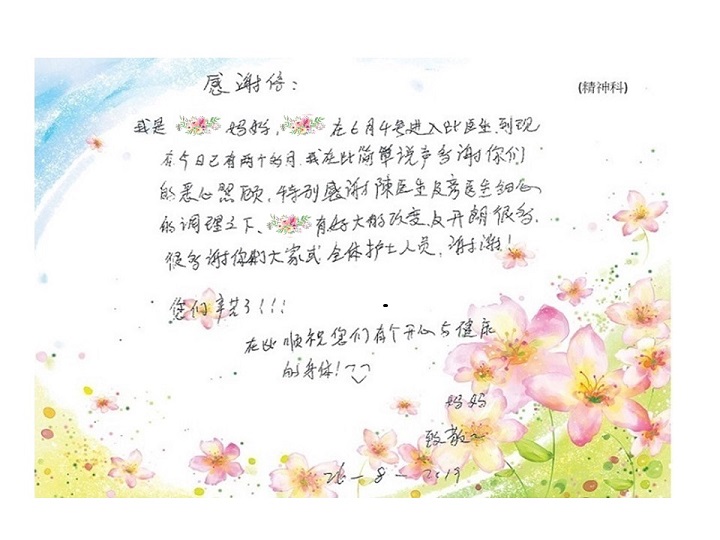 感谢信：
(精神科)
我是 妈妈， 在6月4号进入此医生,到现
在今日已有两个多月,我在此简单说声多谢你们
的悉心照顾，特别感谢陳医生及 医生细心
的调理之下、 有好大的改变,及开朗很多,
很多谢你 大家或全体护士人员,谢谢！
您们辛苦了!!!
在此顺祝您们有个开心与健康
的身体!
妈妈
致敬上
26-8-2019